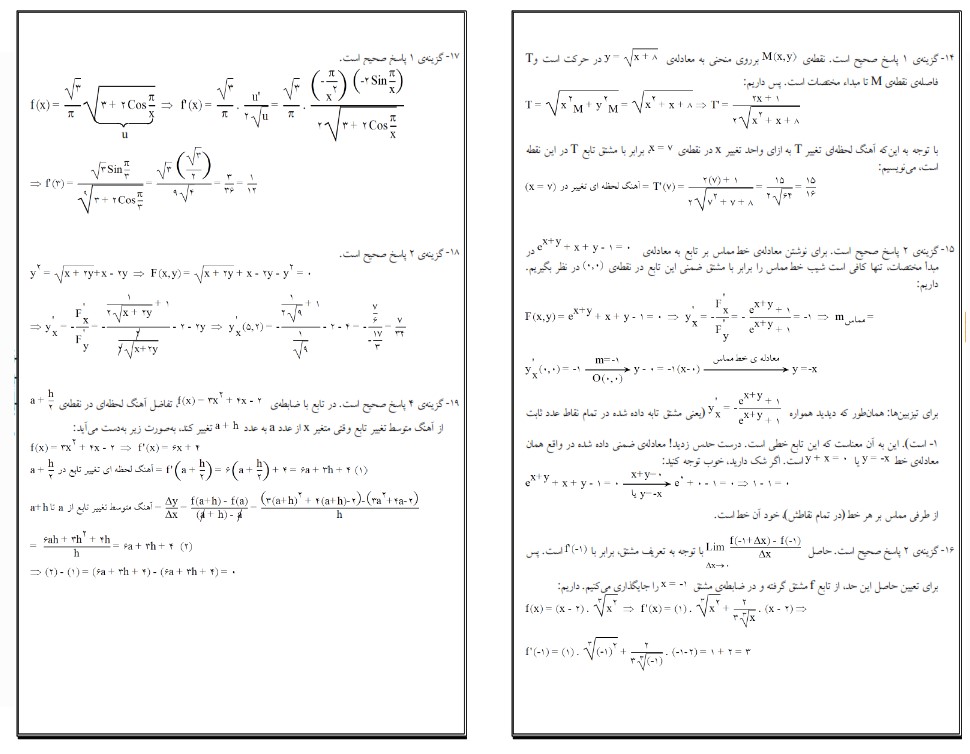 ۱۴- گزینه‌ی ۱ پاسخ صحیح است. نقطه‌ی M(x,y) برروی منحنی به معادله‌ی y = √(x + ۸) در حرکت است و T
فاصله‌ی نقطه‌ی M تا مبداء مختصات است. پس داریم:
T = √(x²M + y²M) = √(x² + x + ۸) ⇒ T' = (۲x + ۱) / (۲√(x² + x + ۸))
با توجه به این‌که آهنگ لحظه‌ای تغییر T به ازای واحد تغییر x در نقطه‌ی x = ۷، برابر با مشتق تابع T در این نقطه
است، می‌نویسیم:
(x = ۷) آهنگ لحظه ای تغییر در = T'(۷) = (۲(۷) + ۱) / (۲√(۷² + ۷ + ۸)) = ۱۵ / (۲√۶۴) = ۱۵/۱۶
۱۵- گزینه‌ی ۲ پاسخ صحیح است. برای نوشتن معادله‌ی خط مماس بر تابع به معادله‌ی e^(x+y) + x + y - ۱ = ۰ در
مبدأ مختصات، تنها کافی است شیب خط مماس را برابر با مشتق ضمنی این تابع در نقطه‌ی (۰,۰) در نظر بگیریم.
داریم:
F(x,y) = e^(x+y) + x + y - ۱ = ۰ ⇒ y'x = - F'x / F'y = - (e^(x+y) + ۱) / (e^(x+y) + ۱) = -۱ ⇒ m مماس =
y'x (۰,۰) = -۱ m=-۱ O(۰,۰) → y - ۰ = -۱(x-۰) معادله ی خط مماس → y = -x
برای تیزبین‌ها: همان‌طور که دیدید همواره y'x = - (e^(x+y) + ۱) / (e^(x+y) + ۱) (یعنی مشتق تابه داده شده در تمام نقاط عدد ثابت
۱- است). این به آن معناست که این تابع خطی است. درست حدس زدید! معادله‌ی ضمنی داده شده در واقع همان
معادله‌ی خط y = -x یا y + x = ۰ است. اگر شک دارید، خوب توجه کنید:
e^(x+y) + x + y - ۱ = ۰ x+y=۰ یا y=-x → e^۰ + ۰ - ۱ = ۰ ⇒ ۱ - ۱ = ۰
از طرفی مماس بر هر خط (در تمام نقاطش)، خود آن خط است.
۱۶- گزینه‌ی ۲ پاسخ صحیح است. حاصل Lim Δx→۰ (f(-۱+Δx) - f(-۱)) / Δx با توجه به تعریف مشتق، برابر با f'(-۱) است. پس
برای تعیین حاصل این حد، از تابع f مشتق گرفته و در ضابطه‌ی مشتق x = -۱ را جایگذاری می‌کنیم. داریم:
f(x) = (x - ۲) . ³√(x²) ⇒ f'(x) = (۱) . ³√(x²) + ۲ / (۳ ³√x) . (x - ۲) ⇒
f'(-۱) = (۱) . ³√((-۱)²) + ۲ / (۳ ³√(-۱)) . (-۱-۲) = ۱ + ۲ = ۳
۱۷- گزینه‌ی ۱ پاسخ صحیح است.
f(x) = √۳/π √(۳ + ۲Cos π/x) u ⇒ f'(x) = √۳/π . u' / (۲√u) = √۳/π . (-π/x²)(-۲Sin π/x) / (۲√(۳ + ۲Cos π/x))
⇒ f'(۳) = √۳ Sin π/۳ / (۹√(۳ + ۲Cos π/۳)) = √۳(√۳/۲) / (۹√۴) = ۳/۳۶ = ۱/۱۲
۱۸- گزینه‌ی ۲ پاسخ صحیح است.
y² = √(x + ۲y) + x - ۲y ⇒ F(x,y) = √(x + ۲y) + x - ۲y - y² = ۰
⇒ y'x = - F'x / F'y = - (۱ / (۲√(x + ۲y)) + ۱) / (۲ / (۲√(x+۲y)) - ۲ - ۲y) ⇒ y'x (۵,۲) = - (۱ / (۲√۹) + ۱) / (۱/√۹ - ۲ - ۴) = - (۷/۶) / (-۱۷/۳) = ۷/۳۴
۱۹- گزینه‌ی ۴ پاسخ صحیح است. در تابع با ضابطه‌ی f(x) = ۳x² + ۴x - ۲، تفاضل آهنگ لحظه‌ای در نقطه‌ی a + h/۲
از آهنگ متوسط تغییر تابع وقتی متغیر x از عدد a به عدد a + h تغییر کند، به‌صورت زیر به‌دست می‌آید:
f(x) = ۳x² + ۴x - ۲ ⇒ f'(x) = ۶x + ۴
a + h/۲ آهنگ لحظه ای تغییر تابع در = f'(a + h/۲) = ۶(a + h/۲) + ۴ = ۶a + ۳h + ۴ (۱)
a+h تا a آهنگ متوسط تغییر تابع از = Δy/Δx = (f(a+h) - f(a)) / ((a+h) - a) = ((۳(a+h)² + ۴(a+h)-۲)-(۳a²+۴a-۲)) / h
= (۶ah + ۳h² + ۴h) / h = ۶a + ۳h + ۴ (۲)
⇒ (۲) - (۱) = (۶a + ۳h + ۴) - (۶a + ۳h + ۴) = ۰